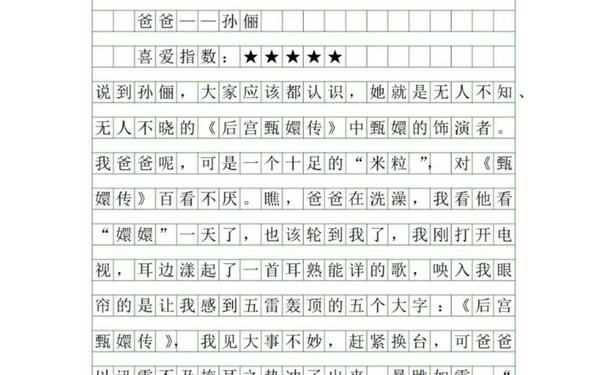 爸爸——孙俪
喜爱指数：★★★★★
说到孙俪，大家应该都认识，她就是无人不知、
无人不晓的《后宫甄嬛传》中甄嬛的饰演者。
我爸爸呢，可是一个十足的“米粒”，对《甄
嬛传》百看不厌。瞧，爸爸在洗澡，我看他看
“嬛嬛”一天了，也该轮到我了，我刚打开电
视，耳边漾起了一首耳熟能详的歌，映入我眼
帘的是让我感到五雷轰顶的五个大字：《后宫
甄嬛传》，我见大事不妙，赶紧换台，可爸爸
以迅雷不及掩耳之势冲了出来，暴跳如雷，“